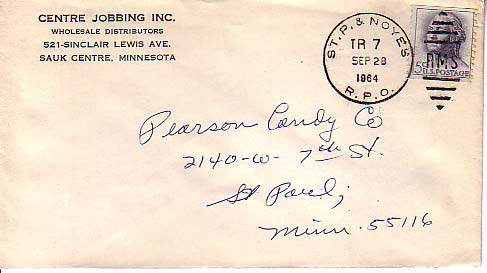 CENTRE JOBBING INC.
WHOLESALE DISTRIBUTORS
521-SINCLAIR LEWIS AVE.
SAUK CENTRE, MINNESOTA
ST. P. & NOYES
TR 7
SEP 28
1964
R.P.O.
RMS
5c U.S. POSTAGE
Pearson Candy Co
2140-W- 7th St.
St Paul;
Minn. 55116